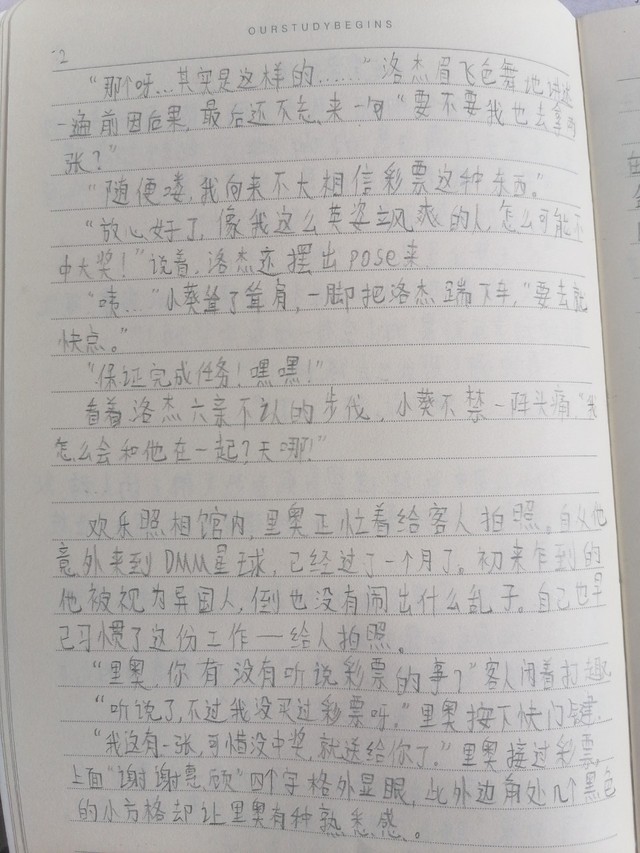 OURSTUDYBEGINS
2
“那个呀…其实是这样的……”洛杰眉飞色舞地讲述
一遍前因后果，最后还不忘来一句“要不要我也去拿两
张？”
“随便喽，我向来不大相信彩票这种东西。”
“放心好了，像我这么英姿飒爽的人，怎么可能不
中大奖！”说着，洛杰还摆出pose来
“咦…”小葵耸了耸肩，一脚把洛杰踹下车，“要去就
快点。”
“保证完成任务！嘿嘿！”
看着洛杰六亲不认的步伐，小葵不禁一阵头痛“我
怎么会和他在一起？天哪！”
欢乐照相馆内，里奥正忙着给客人拍照。自从他
意外来到DMM星球，已经过了一个月了。初来乍到的
他被视为异国人，倒也没有闹出什么乱子。自己也早
已习惯了这份工作——给人拍照。
“里奥，你有没有听说彩票的事？”客人闲着打趣
“听说了，不过我没买过彩票呀。”里奥按下快门键.
“我这有一张，可惜没中奖，就送给你了。”里奥接过彩票，
上面“谢谢惠顾”四个字格外显眼，此外边角处几个黑色
的小方格却让里奥有种熟悉感。